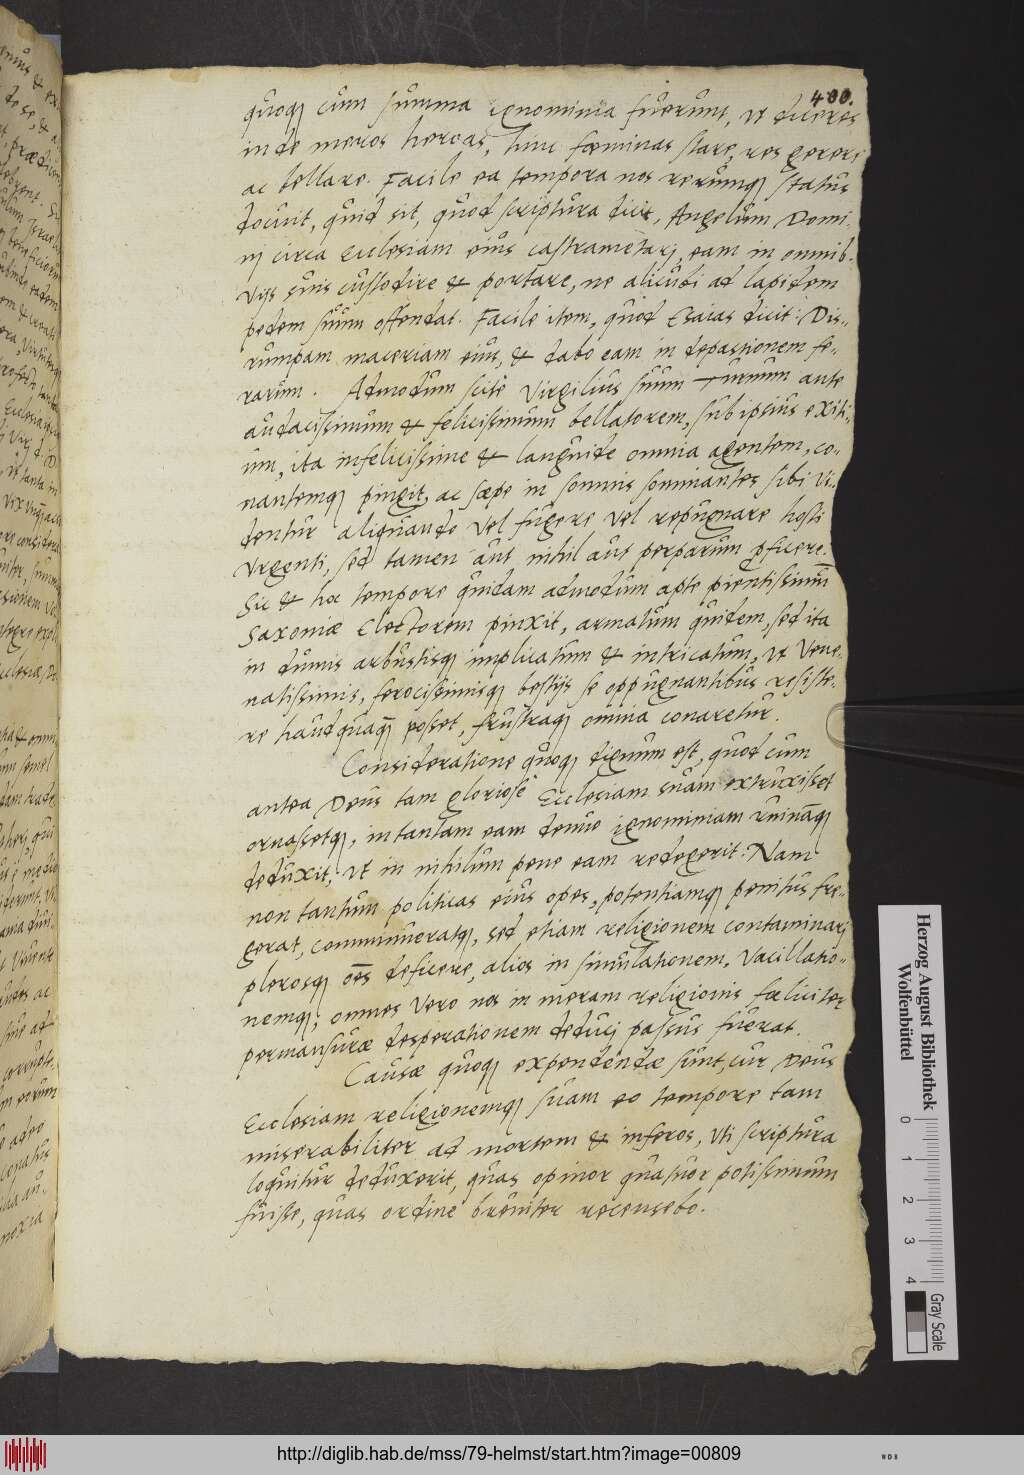 400.
quoq3 cum summa ignominia fuerunt, ut diceres
inde meros heroas, hinc fœminas stare, res gerere
ac bellare. Facile ea tempora nos rerumq3 status
docuit, quid sit, quod scriptura dicit, Angelum Domi-
nj circa Ecclesiam eius castrametarj, eam in omnib.
vijs suis custodire & portare, ne alicubi ad lapidem
pedem suum offendat. Facile item, quod Esaias dicit: Dis-
rumpam maceriam eius, & dabo eam in depastionem fe-
rarum. Admodum scitè Virgilius suum Turnum ante
audacissimum & felicissimum bellatorem, sub ipsius exiti-
um, ita infelicissime & languide omnia agentem, co-
nantemq3 pingit, ac sæpe in somnis somniantes sibi vi-
dentur aliquando vel fugere vel repugnare hosti
urgenti, sed tamen aut nihil aut perparum pficere.
Sic & hoc tempore quidam admodum apte pientissimū
Saxoniæ Electorem pinxit, armatum quidem, sed ita
in dumis arbustisq3 implicatum & intricatum, ut vene-
natissimis, ferocissimisq3 bestijs se oppugnantibus resiste-
re haudquaq̄ posset, frustraq3 omnia conaretur.
Consideratione quoq3 dignum est, quod cum
antea Deus tam gloriosè Ecclesiam suam extruxisset
ornassetq3, in tantam eam denuo ignominiam ruināq3
deduxit, ut in nihilum pene eam redegerit. Nam
non tantum politicas eius opes, potentiamq3 penitus fre-
gerat, comminueratq3, sed etiam religionem contaminarj
plerosq3 oēs deficere, alios in simulationem, vacillatio-
nemq3, omnes vero nos in meram religionis fœliciter
permansuræ desperationem deducj passus fuerat.
Causæ quoq3 expendendæ sunt, cur Deus
Ecclesiam religionemq3 suam eo tempore tam
miserabiliter ad mortem & inferos, uti scriptura
loquitur deduxerit, quas opinor quatuor potissimum
fuisse, quas ordine breviter recensebo.
Herzog August Bibliothek
Wolfenbüttel
0 1 2 3 4
Gray Scale
http://diglib.hab.de/mss/79-helmst/start.htm?image=00809